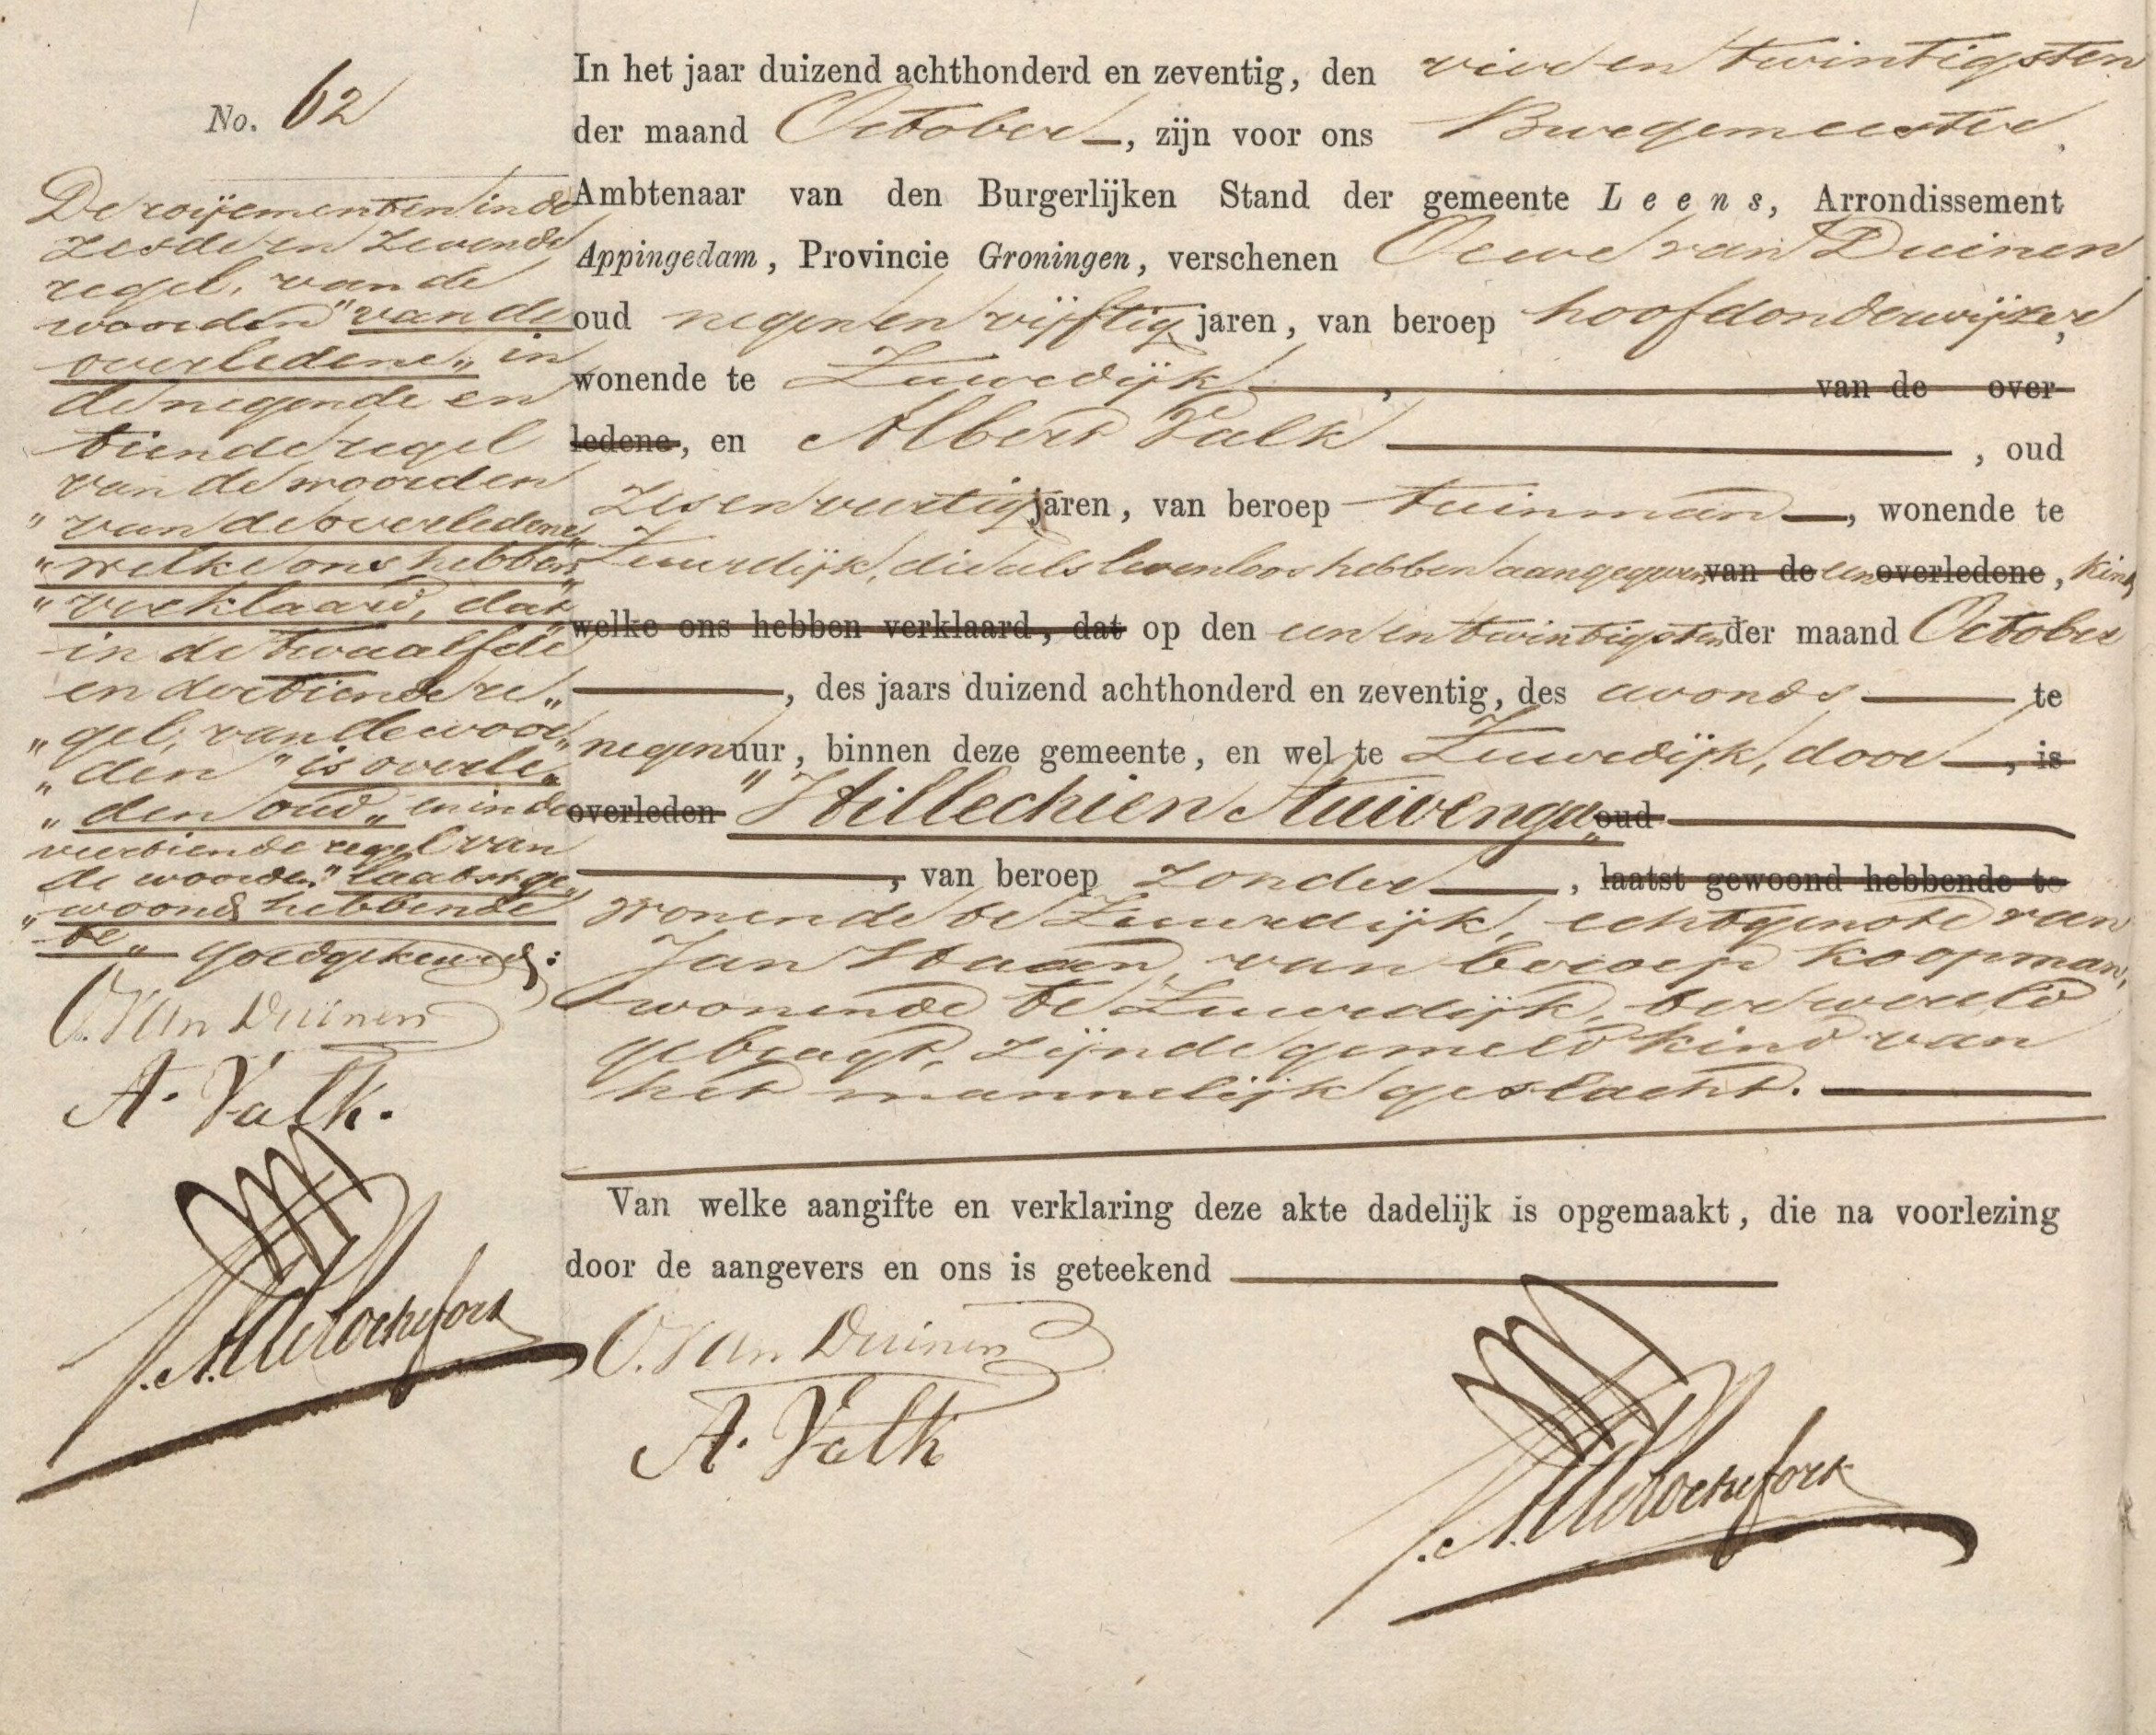 No. 62
De roijementen in de
zesde en zevende
regel, van de
woorden "van de
overledene" in
de negende en
tiende regel
van de woorden
"van de overledene"
"welke ons hebben"
"verklaard, dat"
in de twaalfde
en dertiende re"
"gel, van de woor"
"den "is overle"
"den oud" en in de
veertiende regel van
de woorden "laatst ge"
"woond hebbende
te" goedgekeurd:
O. Van Duinen
A. Valk.
In het jaar duizend achthonderd en zeventig, den vier en twintigsten
der maand October —, zijn voor ons Burgemeester,
Ambtenaar van den Burgerlijken Stand der gemeente Leens, Arrondissement
Appingedam, Provincie Groningen, verschenen Oewe van Duinen
oud negen en vijftig jaren, van beroep hoofdonderwijzer,
wonende te Zuurdijk —, van de over-
ledene, en Albert Valk —, oud
zes en veertig jaren, van beroep tuinman —, wonende te
Zuurdijk, die als levenloos hebben aangegeven van de een overledene, kind,
welke ons hebben verklaard, dat op den een en twintigsten der maand October
—, des jaars duizend achthonderd en zeventig, des avonds — te
negen uur, binnen deze gemeente, en wel te Zuurdijk, door —, is
overleden "Hillechien Stuivenga" oud —
—, van beroep zonder —, laatst gewoond hebbende te
wonende te Zuurdijk, echtgenote van
Jan Haan, van beroep koopman,
wonende te Zuurdijk, ter wereld
gebragt, zijnde gemeld kind van
het mannelijk geslacht. —
Van welke aangifte en verklaring deze akte dadelijk is opgemaakt, die na voorlezing
door de aangevers en ons is geteekend —
O. Van Duinen
A. Valk